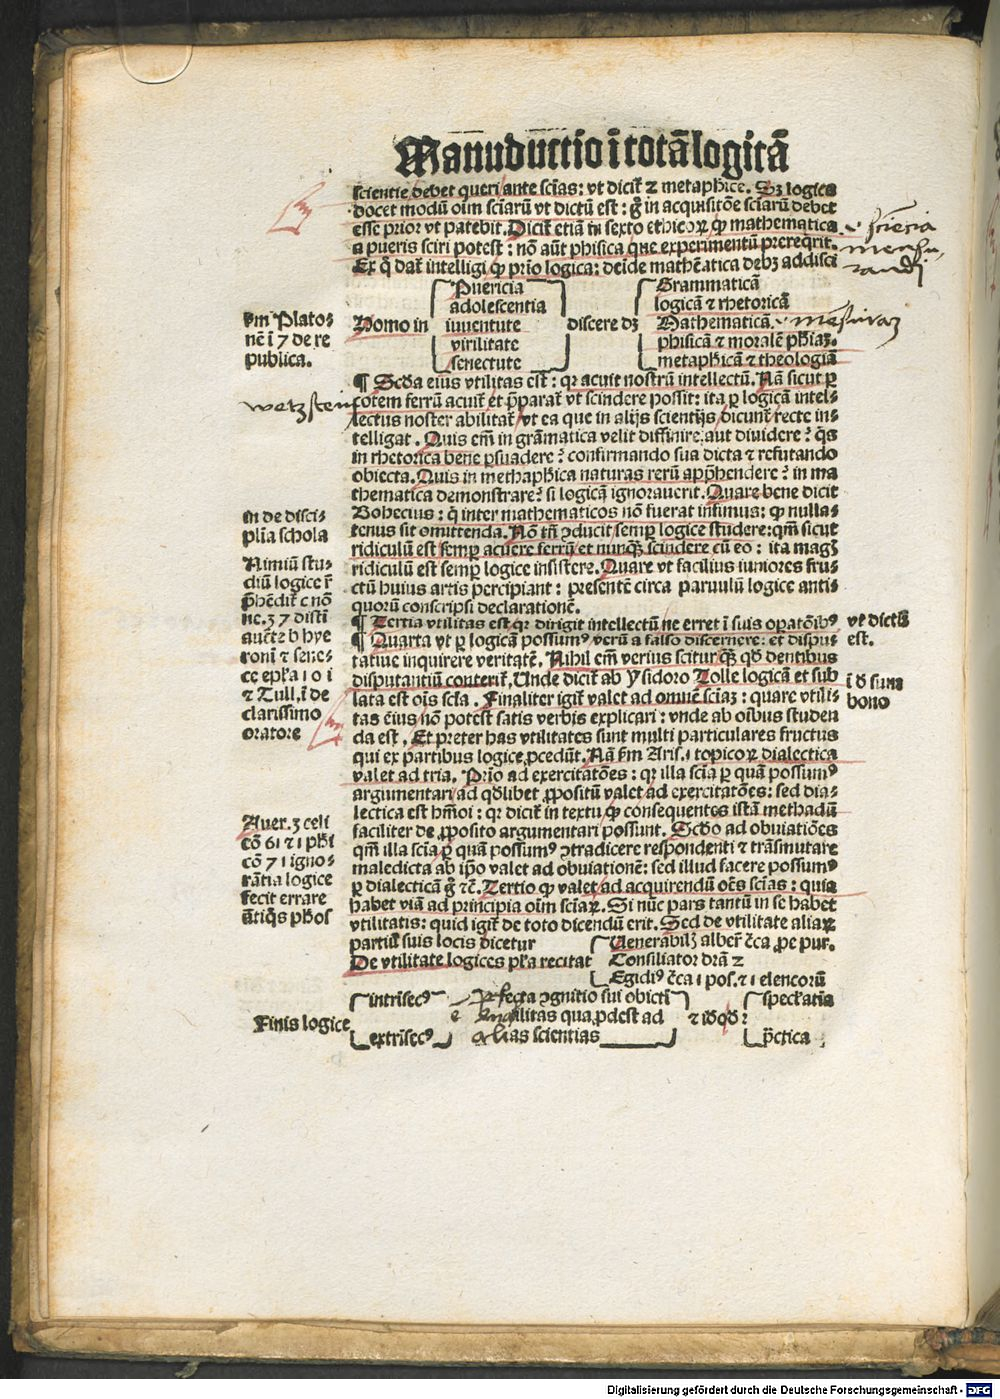 Manuductio ī totā logicā
scientie debet queri ante sciās: vt dicit̄ 2 metaphice. Sʒ logica
docet modū oīm sciarū vt dictū est: g̊ in acquisitōe sciarū debet
esse prior vt patebit. Dicit̄ etiā in sexto ethicoꝝ ꝙ mathematica
a pueris sciri potest: nō aūt phisica que experimentū prereqrit.
Ex q̊ dat̄ intelligi ꝙ prīo logica: deīde mathēatica debʒ addisci
sciēcia
mensu
randi
Ꝑm Plato-
nē ī 7 de re
publica.
Homo in
Puericia
adolescentia
iuuentute
virilitate
senectute
discere dʒ
Grammaticā
logicā ⁊ rhetoricā
Mathematicā
phisicā ⁊ moralē phīaʒ.
metaphicā ⁊ theologiā
¶ Scd̄a eius vtilitas est: qꝛ acuit nostrū intellectū. Nā sicut ꝑ
cotem ferrū acuit̄ et p̄parat̄ vt scindere possit: ita ꝑ logicā intel-
wetzsten
lectus noster abilitat̄ vt ea que in alijs scientijs dicunt̄ recte in-
telligat. Quis em̄ in grāmatica velit diffinire aut diuidere? q̄s
in rhetorica bene ꝑsuadere? confirmando sua dicta ⁊ refutando
obiecta. Quis in methaphica naturas rerū app̄hendere? in ma
thematica demonstrare? si logicā ignorauerit. Quare bene dicit
Bohecius: q̄ inter mathematicos nō fuerat infimus: ꝙ nulla-
tenus sit omittenda. Nō tn̄ ꝯducit semꝑ logice studere: qm̄ sicut
ridiculū est semꝑ acuere ferrū et nunqʒ scindere cū eo: ita magʒ
ridiculū est semꝑ logice insistere. Quare vt facilius iuniores fru-
ctū huius artis percipiant: presentē circa paruulū logice anti-
quorū conscripsi declarationē.
In de disci-
plīa schola
Nimiū stu-
diū logice r̄
p̄hēdit̄ c nō
ne. 37 disti
auct̄e b hye
ronī ⁊ sene-
ce epl̄a 10 ī
⁊ Tull. ī de
clarissimo
oratore
¶ Tertia vtilitas est qꝛ dirigit intellectū ne erret ī suis oꝑatōibꝰ
vt dictū
est.
¶ Quarta vt ꝑ logicā possumꝰ verū a falso discernere: et dispu-
tatiue inquirere veritatē. Nihil em̄ verius scitur qʒ qd̄ dentibus
disputantiū conterit̄. Unde dicit̄ ab Ysidoro Tolle logicā et sub
lata est oīs sc̄la. Finaliter igit̄ valet ad omnē sciaʒ: quare vtili-
ī d̄ sum
bono
tas eius nō potest satis verbis explicari: vnde ab oībus studen
da est. Et preter has vtilitates sunt multi particulares fructus
qui ex partibus logice ꝓcedūt. Nā ẜm Aris. 1 topicoꝝ dialectica
valet ad tria. Prīo ad exercitatōes: qꝛ illa sc̄ia ꝑ quā possumꝰ
argumentari ad qd̄libet ꝓpositū valet ad exercitatōes: sed dia-
lectica est hmōi: qꝛ dicit̄ in textu ꝙ consequentes istā methadū
faciliter de ꝓposito argumentari possunt. Scd̄o ad obuiatiōes
qm̄ illa sc̄ia ꝑ quā possumꝰ ꝯtradicere respondenti ⁊ trāsmutare
maledicta ab ip̄o valet ad obuiationē: sed illud facere possumꝰ
ꝑ dialecticā g̊ ⁊c̄. Tertio ꝙ valet ad acquirendū oēs sciās: quia
habet viā ad principia oīm sciaꝝ. Si nūc pars tantū in se habet
vtilitatis: quid igit̄ de toto dicendū erit. Sed de vtilitate aliaꝝ
partiū suis locis dicetur
Auer. 3 celi
cō 61 ⁊ 1 phi
cō 71 igno-
rātia logice
fecit errare
ātiq̄s phōs
De vtilitate logices pl̄ra recitat
Uenerabilʒ albert̄ c̄ca ꝓe pur.
Consiliator drā 2
Egidiꝰ c̄ca 1 pos. ⁊ 1 elencorū
Finis logice
intrīsecꝰ
extrīsecꝰ
e
Perfecta ꝯgnitio sui obiecti
vtilitas qua ꝓdest ad
alias scientias
⁊ id qd̄:
speclatia
p̄ctica